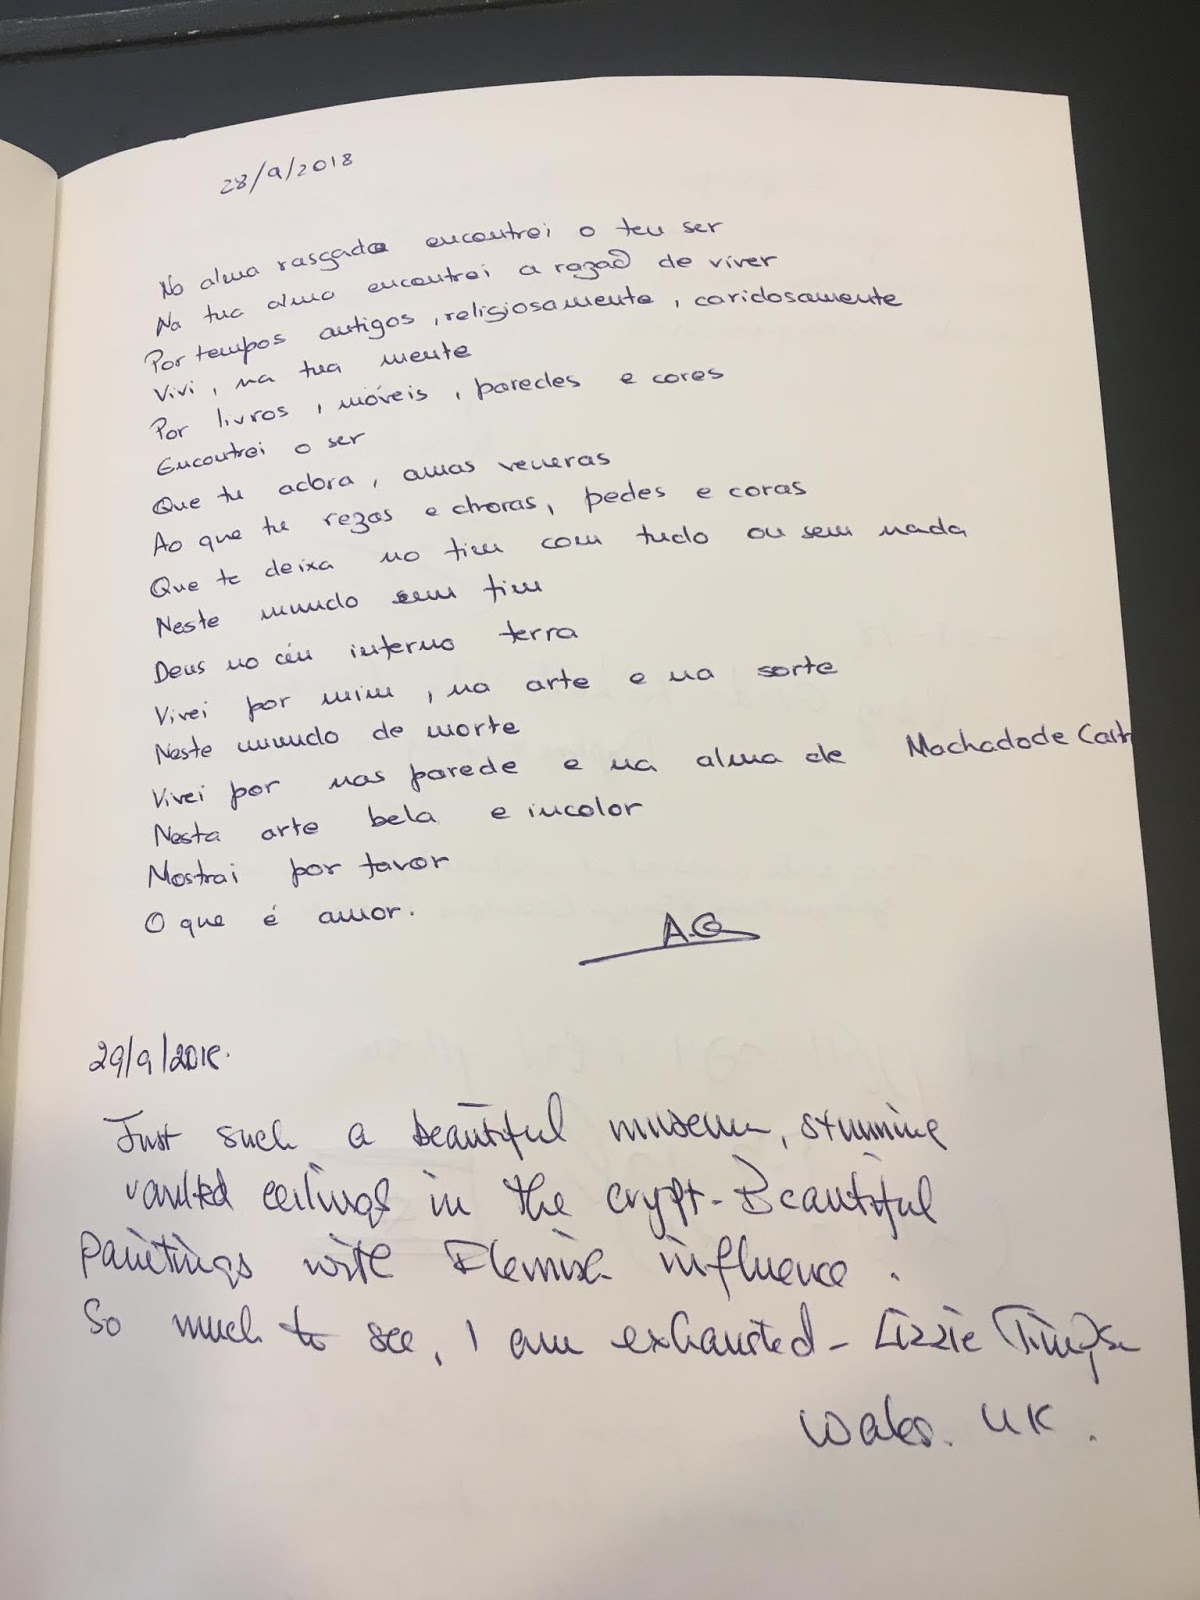 28/9/2018
Na alma rasgada encontrei o teu ser
Na tua alma encontrei a razão de viver
Por tempos antigos, religiosamente, caridosamente
Vivi, na tua mente
Por livros, móveis, paredes e cores
Encontrei o ser
Que tu adora, amas veneras
Ao que tu rezas e choras, pedes e coras
Que te deixa no fim com tudo ou sem nada
Neste mundo sem fim
Deus no céu interno terra
Vivei por mim, na arte e na sorte
Neste mundo de morte
Vivei por nas parede e na alma de Machado de Castr
Nesta arte bela e incolor
Mostrai por favor
O que é amor.
29/9/2018.
Just such a beautiful museum, stunning
vaulted ceilings in the crypt - Beautiful
Paintings with Flemish influence.
So much to see, I am exhausted - Lizzie
Wales. UK.